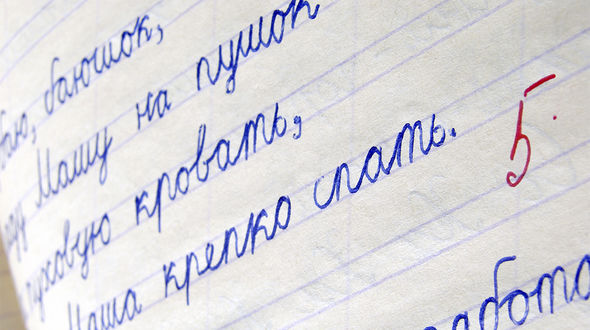 баю, баюшок,
Машу на пушок
пуховую кровать,
Маша крепко спать.
5.
работа